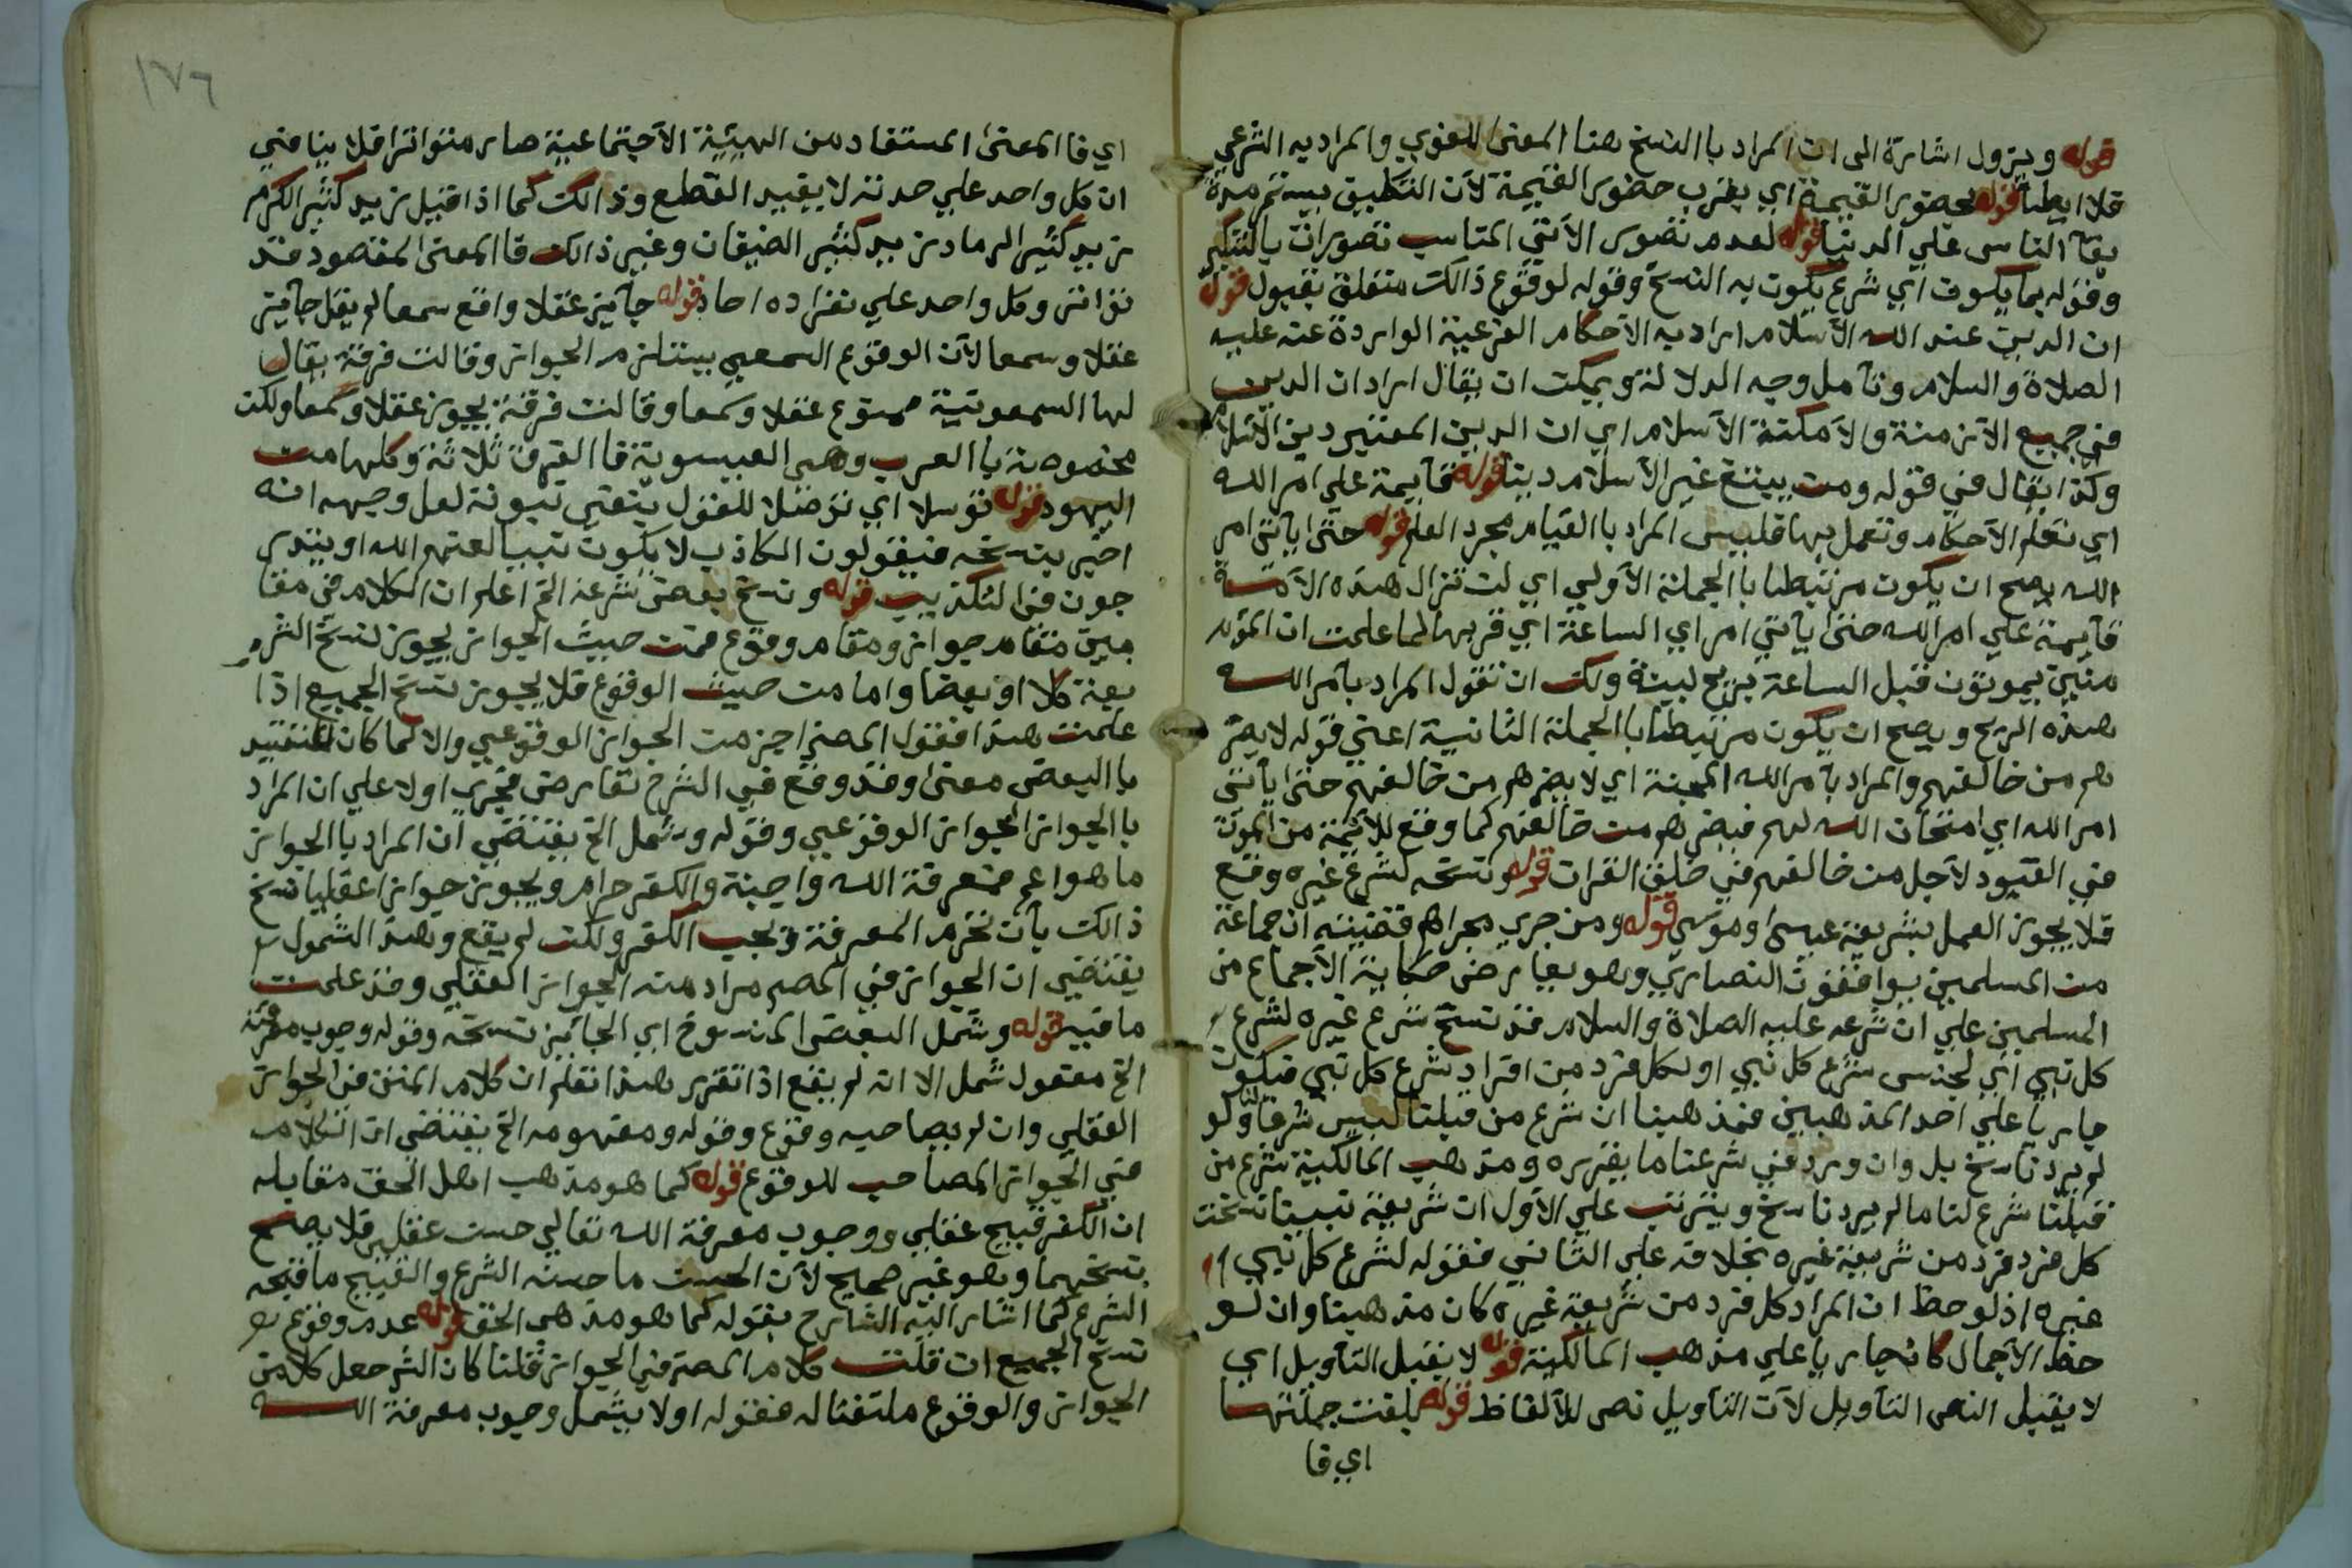 قوله ويزول اشارة الى ان المراد با النسخ هنا المعنى اللغوي والمراد به الشرعي
فلا ايطا قوله لحضور القيمة اي يقرب حضور القيمة لان التكليف يستمر مدة
بقآ الناس علي الدنيا قوله لعدم تصور الاتي المناسب تصوران بالتنكير
وقوله بما يكون اي شرع يكون به النسخ وقوله لوقوع ذالك متعلق بقبول قوله
ان الدين عند الله الاسلام اراد به الاحكام الفرعية الواردة عنه عليه
الصلاة والسلام وتأمل وجه الدلالة ويمكن ان يقال اراد ان الدين
في جميع الازمنة والامكنة الاسلام اي ان الدين المعتبر دين الاسلام
وكذا يقال في قوله ومن يبتغ غير الاسلام دينا قوله قايمة علي امر الله
اي تعلم الاحكام وتعمل بها فليس المراد با القيام مجرد العلم قوله حتى ياتي امر
الله يصح ان يكون مرتبطا با الجملة الاولي اي لن تزال هذه الامة
قايمة علي امر الله حتى يأتي امر اي الساعة اي قربها لما علمت ان المؤ
منين يموتون قبل الساعة بريح لينة ولك ان تقول المراد بأمر الله
هذه الريح ويصح ان يكون مرتبطا با الجملة الثانية اعني قوله لا يضر
هم من خالفهم والمراد بأمر الله المحنة اي لا يضرهم من خالفهم حتى يأتي
امر الله اي امتحان الله لهم فيضرهم من خالفهم كما وقع للايمة من الموت
في القيود لاجل من خالفهم في خلق القران قوله ونسخه لشرع غيره وقع
فلا يجوز العمل بشريعة عيسى وموسي قوله ومن جري مجراهم قضيته ان جماعة
من المسلمين يوافقون النصاري وهو يعارض حكاية الاجماع من
المسلمين علي ان شرعه عليه الصلاة والسلام قد نسخ شرع غيره لشرع
كل نبي اي لجنس شرع كل نبي او لكل فرد من افراد شرع كل نبي فيكون
جاريا علي احد المذهبين فمذهبنا ان شرع من قبلنا ليس شرعا لنا ولو
لم يرد ناسخ بل وان ورد في شرعنا ما يقرره ومذهب المالكية شرع من
قبلنا شرع لنا ما لم يرد ناسخ ويترتب علي الاول ان شريعة نبينا نسخت
كل فرد فرد من شريعة غيره بخلافه علي الثاني فقوله لشرع كل نبي
غيره اذ لوحظ ان المراد كل فرد من شريعة غيره كان مذهبنا وان لو
حظ الاجمال كان جاريا علي مذهب المالكية قوله لا يقبل التأويل اي
لا يقبل النص التأويل لان التأويل نص للالفاظ قوله بلغت جملتها
اي فا
١٧٦
اي فا المعنى المستفاد من الهيئة الاجتماعية صار متواترا فلا ينافي
ان كل واحد علي حدته لا يفيد القطع وذالك كما اذا قيل زيد كثير الكرم
زيد كثير الرماد زيد كثير الضيفان وغير ذالك فا المعنى المقصود قد
تواتر وكل واحد علي انفراده احاد قوله جآيز عقلا واقع سمعا لم يقل جآيز
عقلا وسمعا لان الوقوع السمعي يستلزم الجواز وقالت فرقة يقال
لها السمعونية ممنوع عقلا وسمعا وقالت فرقة يجوز عقلا وسمعا ولكن
مخصوصة با العرب وهى العيسوية فا الفرق ثلاثة وكلها من
اليهود قوله توسلا اي توصلا للقول بنفي نبوته لعل وجهه انه
اخبر بنسخه فيقولون الكاذب لا يكون نبيا لعنهم الله او يتدر
جون في التكذيب قوله ونسخ بعض شرعه الخ اعلم ان الكلام في مقا
مين مقام جواز ومقام وقوع فمن حيث الجواز يجوز نسخ الشر
يعة كلا او بعضا واما من حيث الوقوع فلا يجوز نسخ الجميع اذا
علمت هذا فقول المص اجز من الجواز الوقوعي والا لما كان للتقييد
با البعض معنى وقد وقع في الشرح تعارض فجري اولا علي ان المراد
با الجواز الجواز الوقوعي وقوله وشمل الخ يقتضي ان المراد با الجواز
ما هو اعم فمعرفة الله واجبة والكفر حرام ويجوز جوازا عقليا نسخ
ذالك بأن تحرم المعرفة ويجب الكفر ولكن لم يقع وهذ الشمول
يقتضي ان الجواز في المص مراد منه الجواز العقلي وقد علمت
ما فيه قوله وشمل البعض المنسوخ اي الجائز نسخه وقوله وجوب معرفة
الخ مفعول شمل الا انه لم يقع اذا تقرر هذا تعلم ان كلام المتن في الجواز
العقلي وان لم يصاحبه وقوع وقوله ومفهومه الخ يقتضي ان الكلام
في الجواز المصاحب للوقوع قوله كما هو مذهب اهل الحق مقابله
ان الكفر قبيح عقلي ووجوب معرفة الله تعالي حسن عقلي فلا يصح
نسخهما وهو غير صحيح لان الحسن ما حسنه الشرع والقبيح ما قبحه
الشرع كما اشار اليه الشارح بقوله كما هو مذهب الحق قوله عدم وقوع
نسخ الجميع ان قلت كلام المص في الجواز قلنا كان الشر جعل كلامه
الجواز والوقوع ملتفتا له فقوله اولا يشمل وجوب معرفة الله